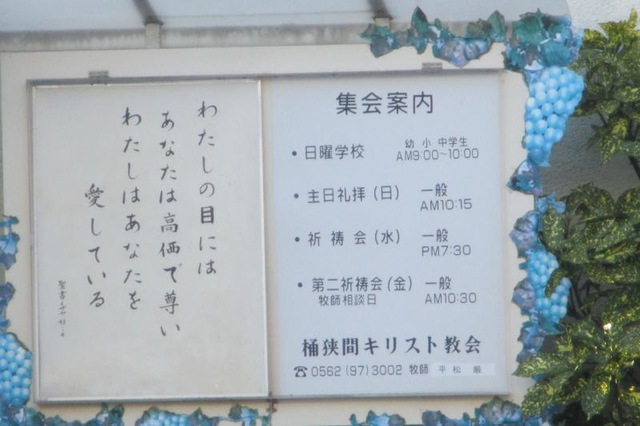 わたしの目には
あなたは高価で尊い
わたしはあなたを
愛している
集会案内
• 日曜学校 幼 小 中学生 AM9:00~10:00
• 主日礼拝 (日) 一般 AM10:15
• 祈祷会 (水) 一般 PM7:30
• 第二祈祷会 (金) 一般 AM10:30
牧師相談日
桶狭間キリスト教会
☎ 0562 (97) 3002 牧師 平松 巌